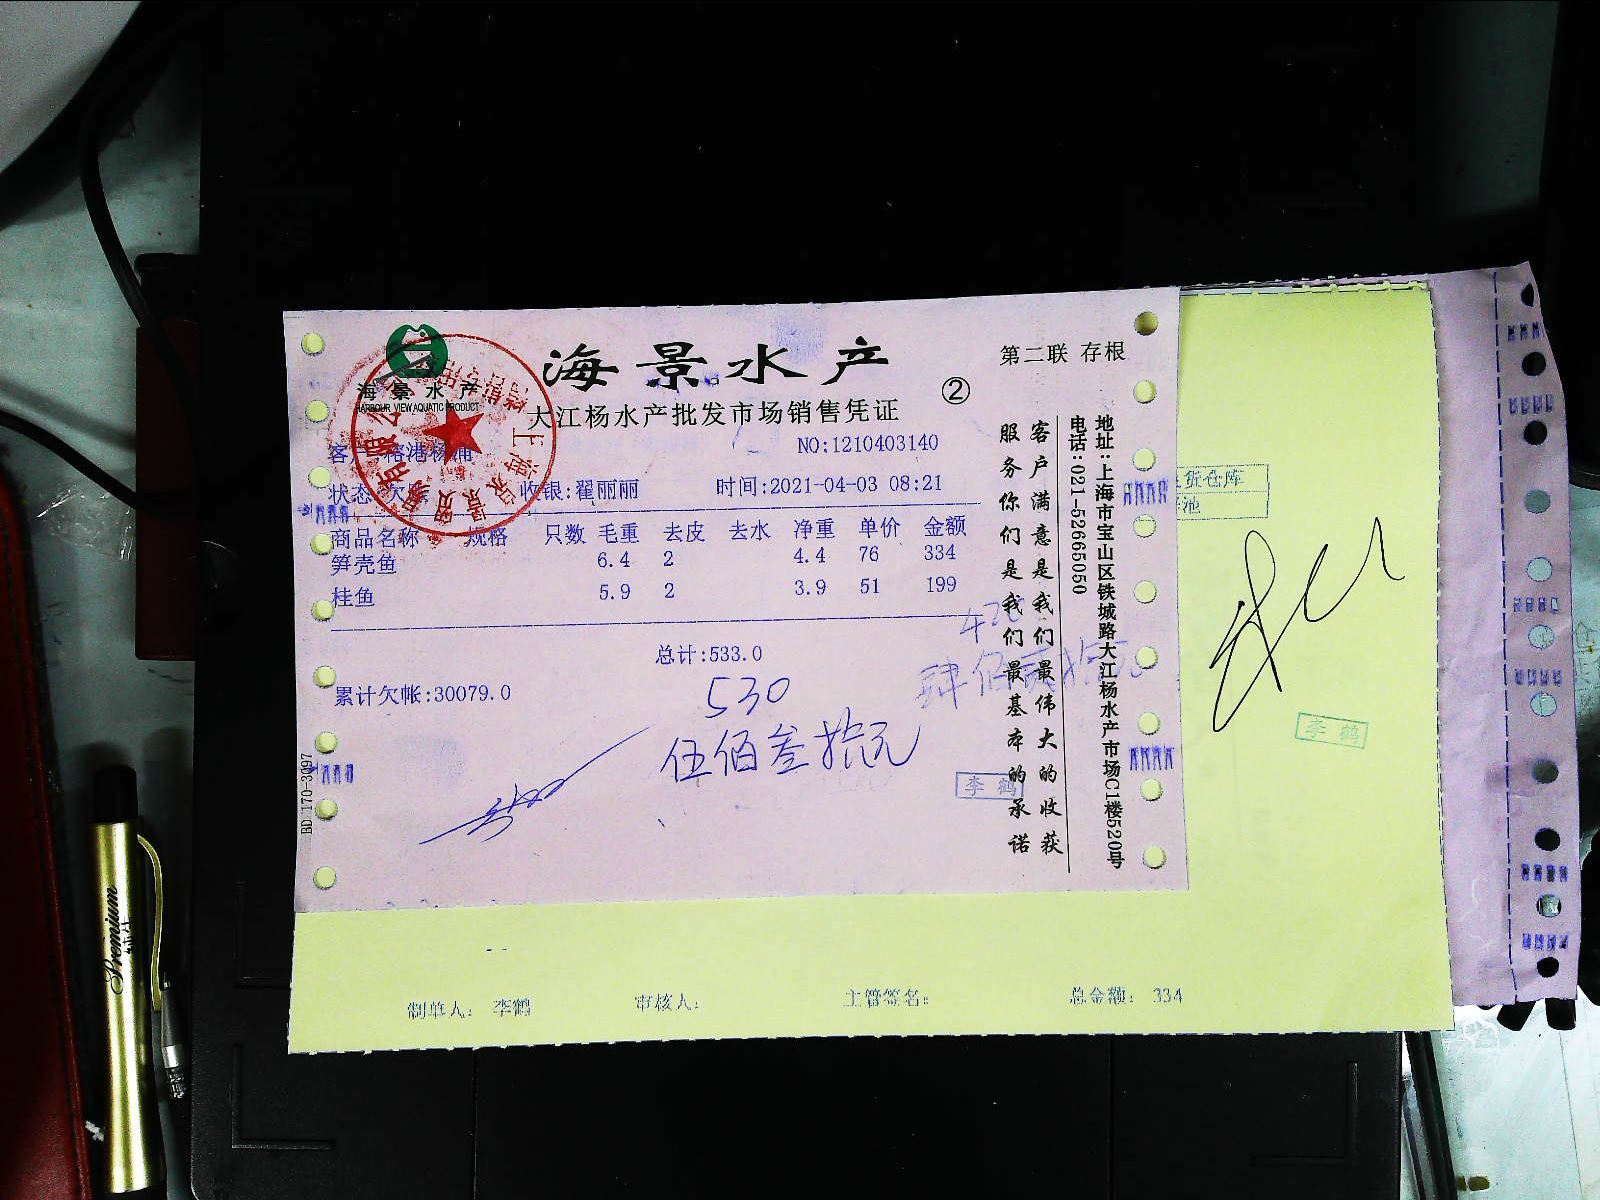 海景水产
海景水产
HARBOUR VIEW AQUATIC PRODUCT
第二联 存根
②
大江杨水产批发市场销售凭证
NO:1210403140
榕港杨浦
收银:翟丽丽 时间:2021-04-03 08:21
商品名称 规格 只数 毛重 去皮 去水 净重 单价 金额
笋壳鱼 6.4 2 4.4 76 334
桂鱼 5.9 2 3.9 51 199
总计:533.0
累计欠帐:30079.0
530
伍佰叁拾元
李鹤
服务你们是我们最基本的承诺
客户满意是我们最伟大的收获
电话:021-52665050
地址:上海市宝山区铁城路大江杨水产市场C1楼520号
BD 170-3097
货仓库
池
李鹤
制单人: 李鹤 审核人: 主管签名: 总金额: 334
Premium